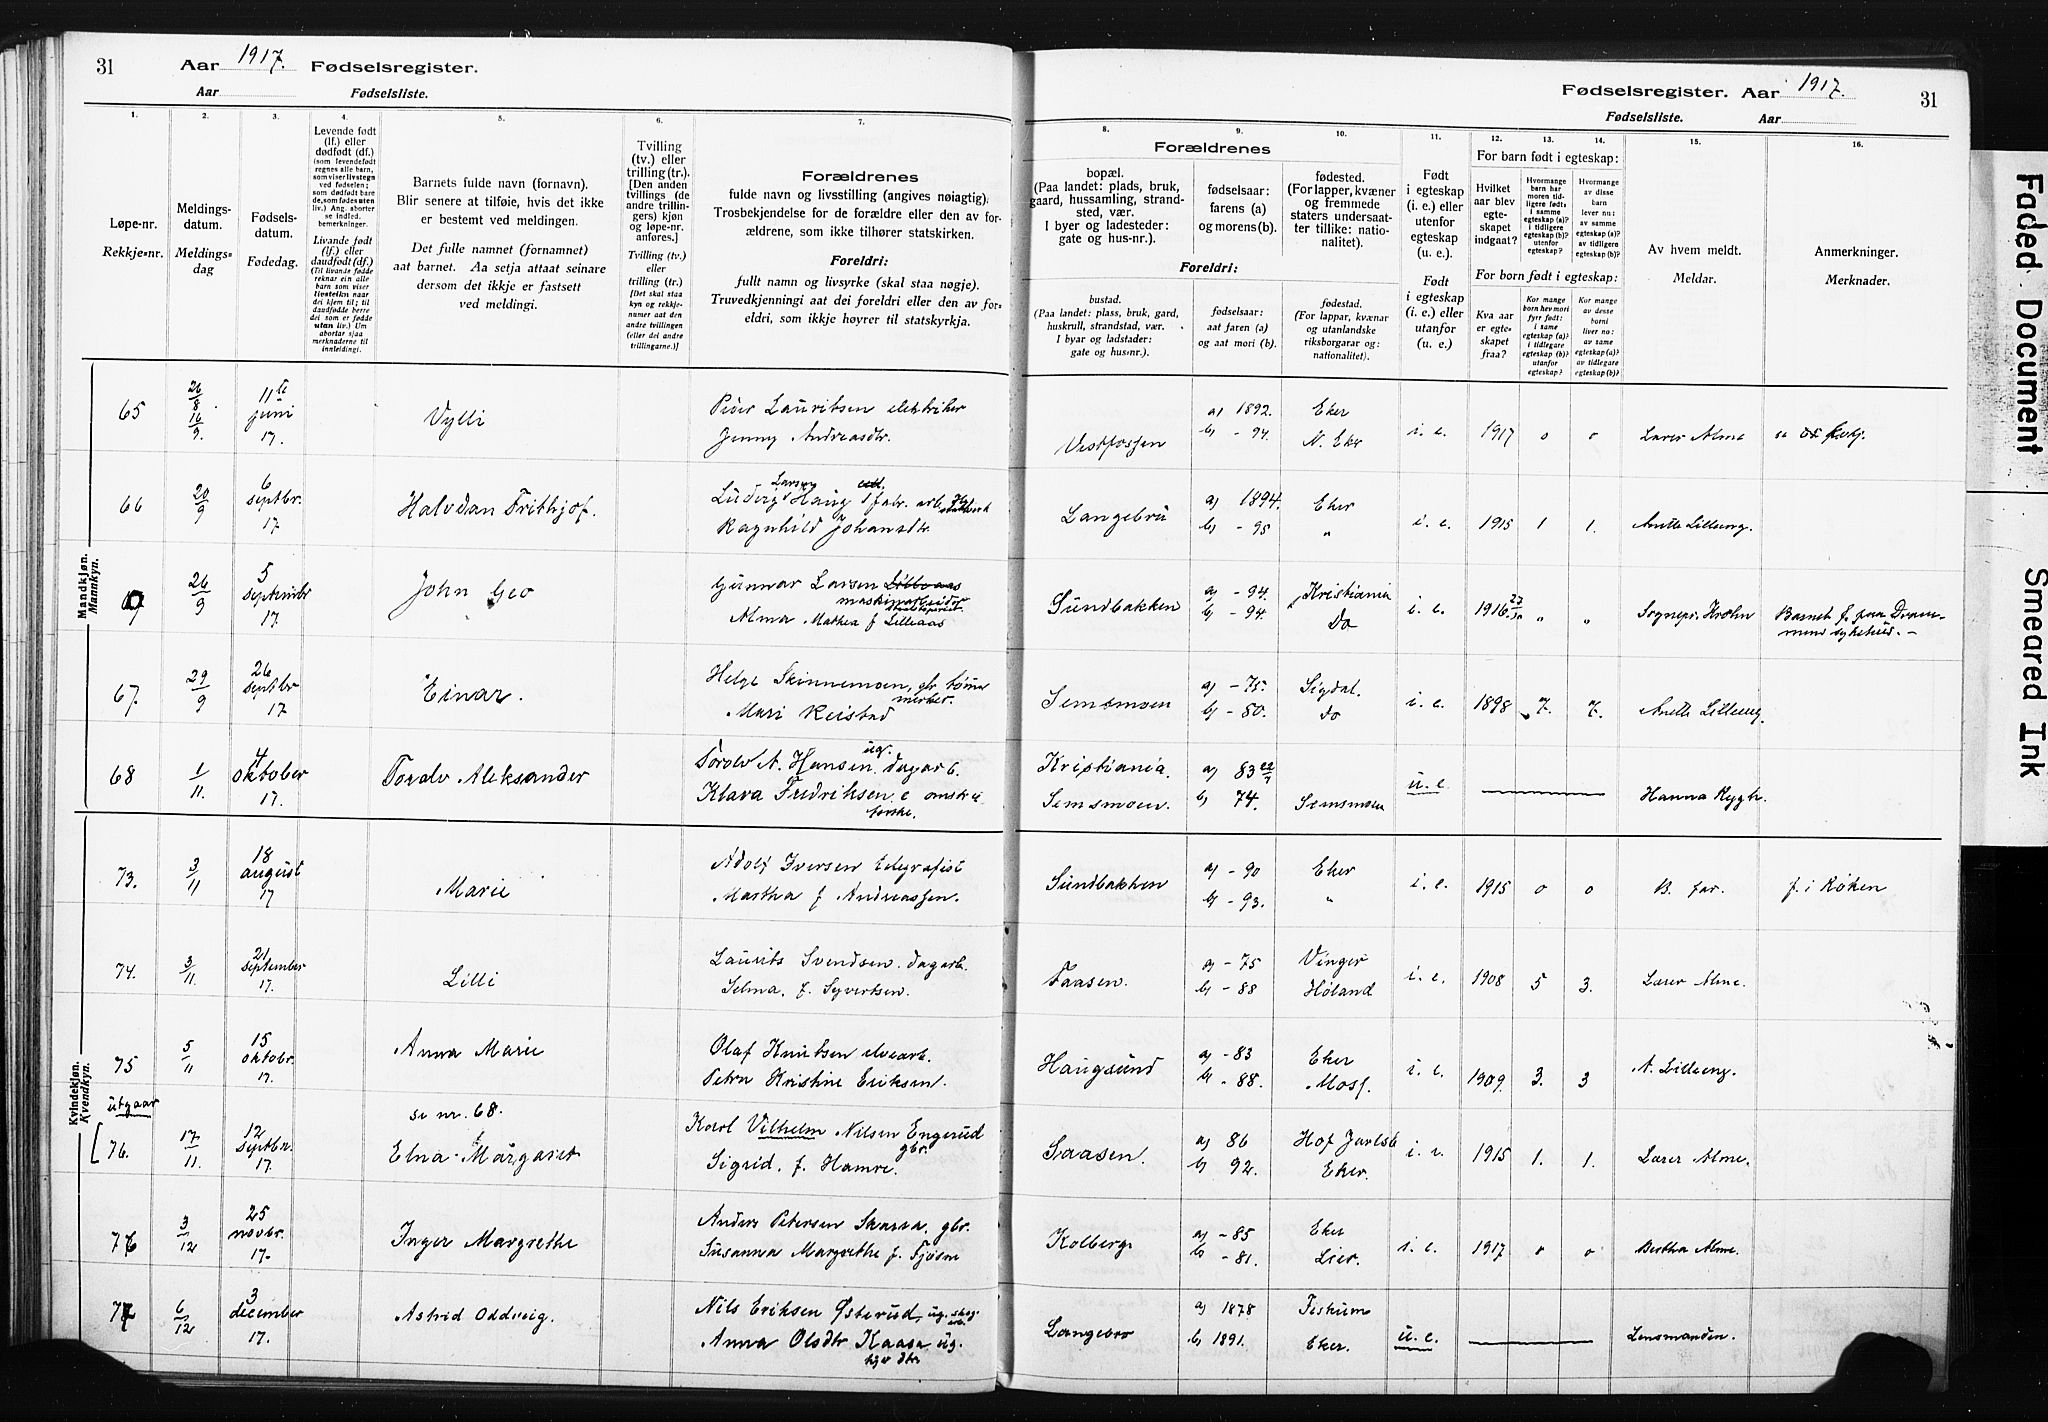 31 Aar 1917. Fødselsregister.
Aar Fødselsliste.
Fødselsregister. Aar 1917. 31
Fødselsliste. Aar
1. 2. 3. 4. 5. 6. 7.
Løpe-nr.
Rekkje-nr.
Meldings-
datum.
Meldings-
dag
Fødsels-
datum.
Fødedag.
Levende født
(lf.) eller
dødfødt (df.)
(som levendefødt
regnes alle barn,
som viser livstegn
ved fødselen;
som dødfødt bare
de, som fødes uten
liv.) Ang. aborter
se indled.
bemerkninger.
Livande født
(lf.) eller
daudfødt (df.)
(Til livande fødde
reknar ein alle
barn som viser
livsteikn naar
dei kjem til; til
daudfødde berre
dei som er fødde
utan liv.) Um
abortar sjaa
merknaderne til
innleidingi.
Barnets fulde navn (fornavn).
Blir senere at tilføie, hvis det ikke
er bestemt ved meldingen.
Det fulle namnet (fornamnet)
aat barnet. Aa setja attaat seinare
dersom det ikkje er fastsett
ved meldingi.
Tvilling
(tv.) eller
trilling (tr.).
[Den anden
tvillings (de
andre trillin-
gers) kjøn
og løpe-nr.
anføres.]
Tvilling (tv.)
eller
trilling (tr.)
[Det skal staa
kyn og rekkje-
numer aat den
andre tvillingen
(eller dei andre
trillingarne.)]
Forældrenes
fulde navn og livsstilling (angives nøiagtig).
Trosbekjendelse for de forældre eller den av for-
ældrene, som ikke tilhører statskirken.
Foreldri:
fullt namn og livsyrke (skal staa nøgje).
Truvedkjenningi aat dei foreldri eller den av for-
eldri, som ikkje høyrer til statskyrkja.
8. 9. 10. 11. 12. 13. 14. 15. 16.
Forældrenes
bopæl.
(Paa landet: plads, bruk,
gaard, hussamling, strand-
sted, vær.
I byer og ladesteder:
gate og hus-nr.).
fødselsaar:
farens (a)
og morens (b).
fødested.
(For lapper, kvæner
og fremmede
staters undersaat-
ter tillike: natio-
nalitet).
Foreldri:
bustad.
(Paa landet: plass, bruk, gard,
huskrull, strandstad, vær.
I byar og ladstader:
gate og hus-nr.).
fødselsaar:
aat faren (a)
og aat mori (b).
fødestad.
(For lappar, kvænar
og utanlandske
riksborgarar og:
nationalitet).
Født
i egteskap
(i. e.) eller
utenfor
egteskap
(u. e.).
Født
i egteskap
(i. e.) eller
utanfor
(u. e.)
For barn født i egteskap:
Hvilket
aar blev
egte-
skapet
indgaat?
Hvormange
barn har
moren tid-
ligere født:
i samme
egteskap (a)?
i tidligere
egteskap (b)?
utenfor
egteskap (c)?
Hvormange
av disse
barn
lever nu:
av samme
egteskap (a)?
av tidligere
egteskap (b)?
For born født i egteskap:
Kva aar
er egte-
skapet
fraa?
Kor mange
born hev mori
fyrr født:
i same
egteskap (a)?
i tidlegare
egteskap (b)?
utanfor
egteskap?
Kor mange
av desse
borni
liver no:
av same
egteskap (a)?
av tidlegare
egteskap (b)?
Av hvem meldt.
Meldar.
Anmerkninger.
Merknader.
Mandkjøn.
Mannkyn.
65 26/8 16/9. 11te juni 17. Vylli
Peder Lauritsen elektriker
Jenny Andreasdtr.
Vestfossen a) 1892. b) - 94. Eker N. Eker i. e. 1917 0 0 Lærer Alme
66 20/9 6 septbr. 17 Halvdan Frithjof.
Ludvig Larsen Haug, fabr. arb.
Ragnhild Johansdtr
Langebru a) 1894. b) - 95 Eker " i. e. 1915 1 1. Anette Lilleeng.
67 26/9 5 septembr 17. John Geo
Gunnar Larsen Lilleaas
maskinarbeider
Alma Mathea f Lilleaas
Sundbakken a) - 94. b) - 94. Kristiania Do i. e. 1916 " " Sognepr. Holm Barnet f. paa Dram-
mens sykehus. -
67. 29/9 26 septbr 17 Einar.
Helge Skinnemoen, gbr. tømmer
merker.
Mari Reistad
Semsmoen a) - 75. b) - 80. Sigdal. do i. e. 1898 7. 7. Anette Lilleeng.
68 1/11. 4 oktober 17. Toralv Aleksander
Toralv A. Hansen ug. dagarb.
Klara Fredriksen e
Kristiania. Semsmoen. a) 83 b) 74. Semsmoen u. e. Hanna Rygh.
Kvindekjøn.
Kvendkyn.
73. 3/11 18 august 17 Marie
Adolf Iversen telegrafist
Martha f Andreassen.
Sundbakken a) - 90 b) - 93. Eker " i. e. 1915 0 0 B. far. f. i Røken
74. 3/11. 21 september 17. Lilli
Laurits Svendsen. dagarb.
Selma. f. Syvertsen.
Faasen. a) - 75 b) - 88 Vinger Høland i. e. 1908 5 3. Lærer Alme.
75 5/11 15 oktobr. 17. Anna Marie
Olaf Knutsen elvearb.
Petra Kristine Eriksen.
Haugsund a) - 83 b) - 88. Eker Moss. i. e. 1909. 3. 3 A. Lilleeng.
utgaar se nr. 68.
76. 17/11. 12 septbr. 17. Elna Margaret
Karl Vilhelm Nilsen Engerud
gbr.
Sigrid. f. Hamre.
Saasen. a) 86 b) 92. Hof Jarlsb Eker. i. e. 1915 1. 1. Lærer Alme.
76 3/12 25 novbr. 17. Inger Margrethe
Anders Petersen Skarra. gbr.
Susanna Margrethe f. Fjøsm
Kolberg a) - 85 b) - 81. Eker Lier. i. e. 1917 0 0 Bertha Alme.
77 6/12 3 december 17. Astrid Oddveig.
Nils Eriksen Østerud, ug. skog
Anna Olsdtr Kaasa ug.
Langebro a) 1878 b) 1891. Fiskum Eker. u. e. Lensmanden.
Faded Document
Smeared Ink